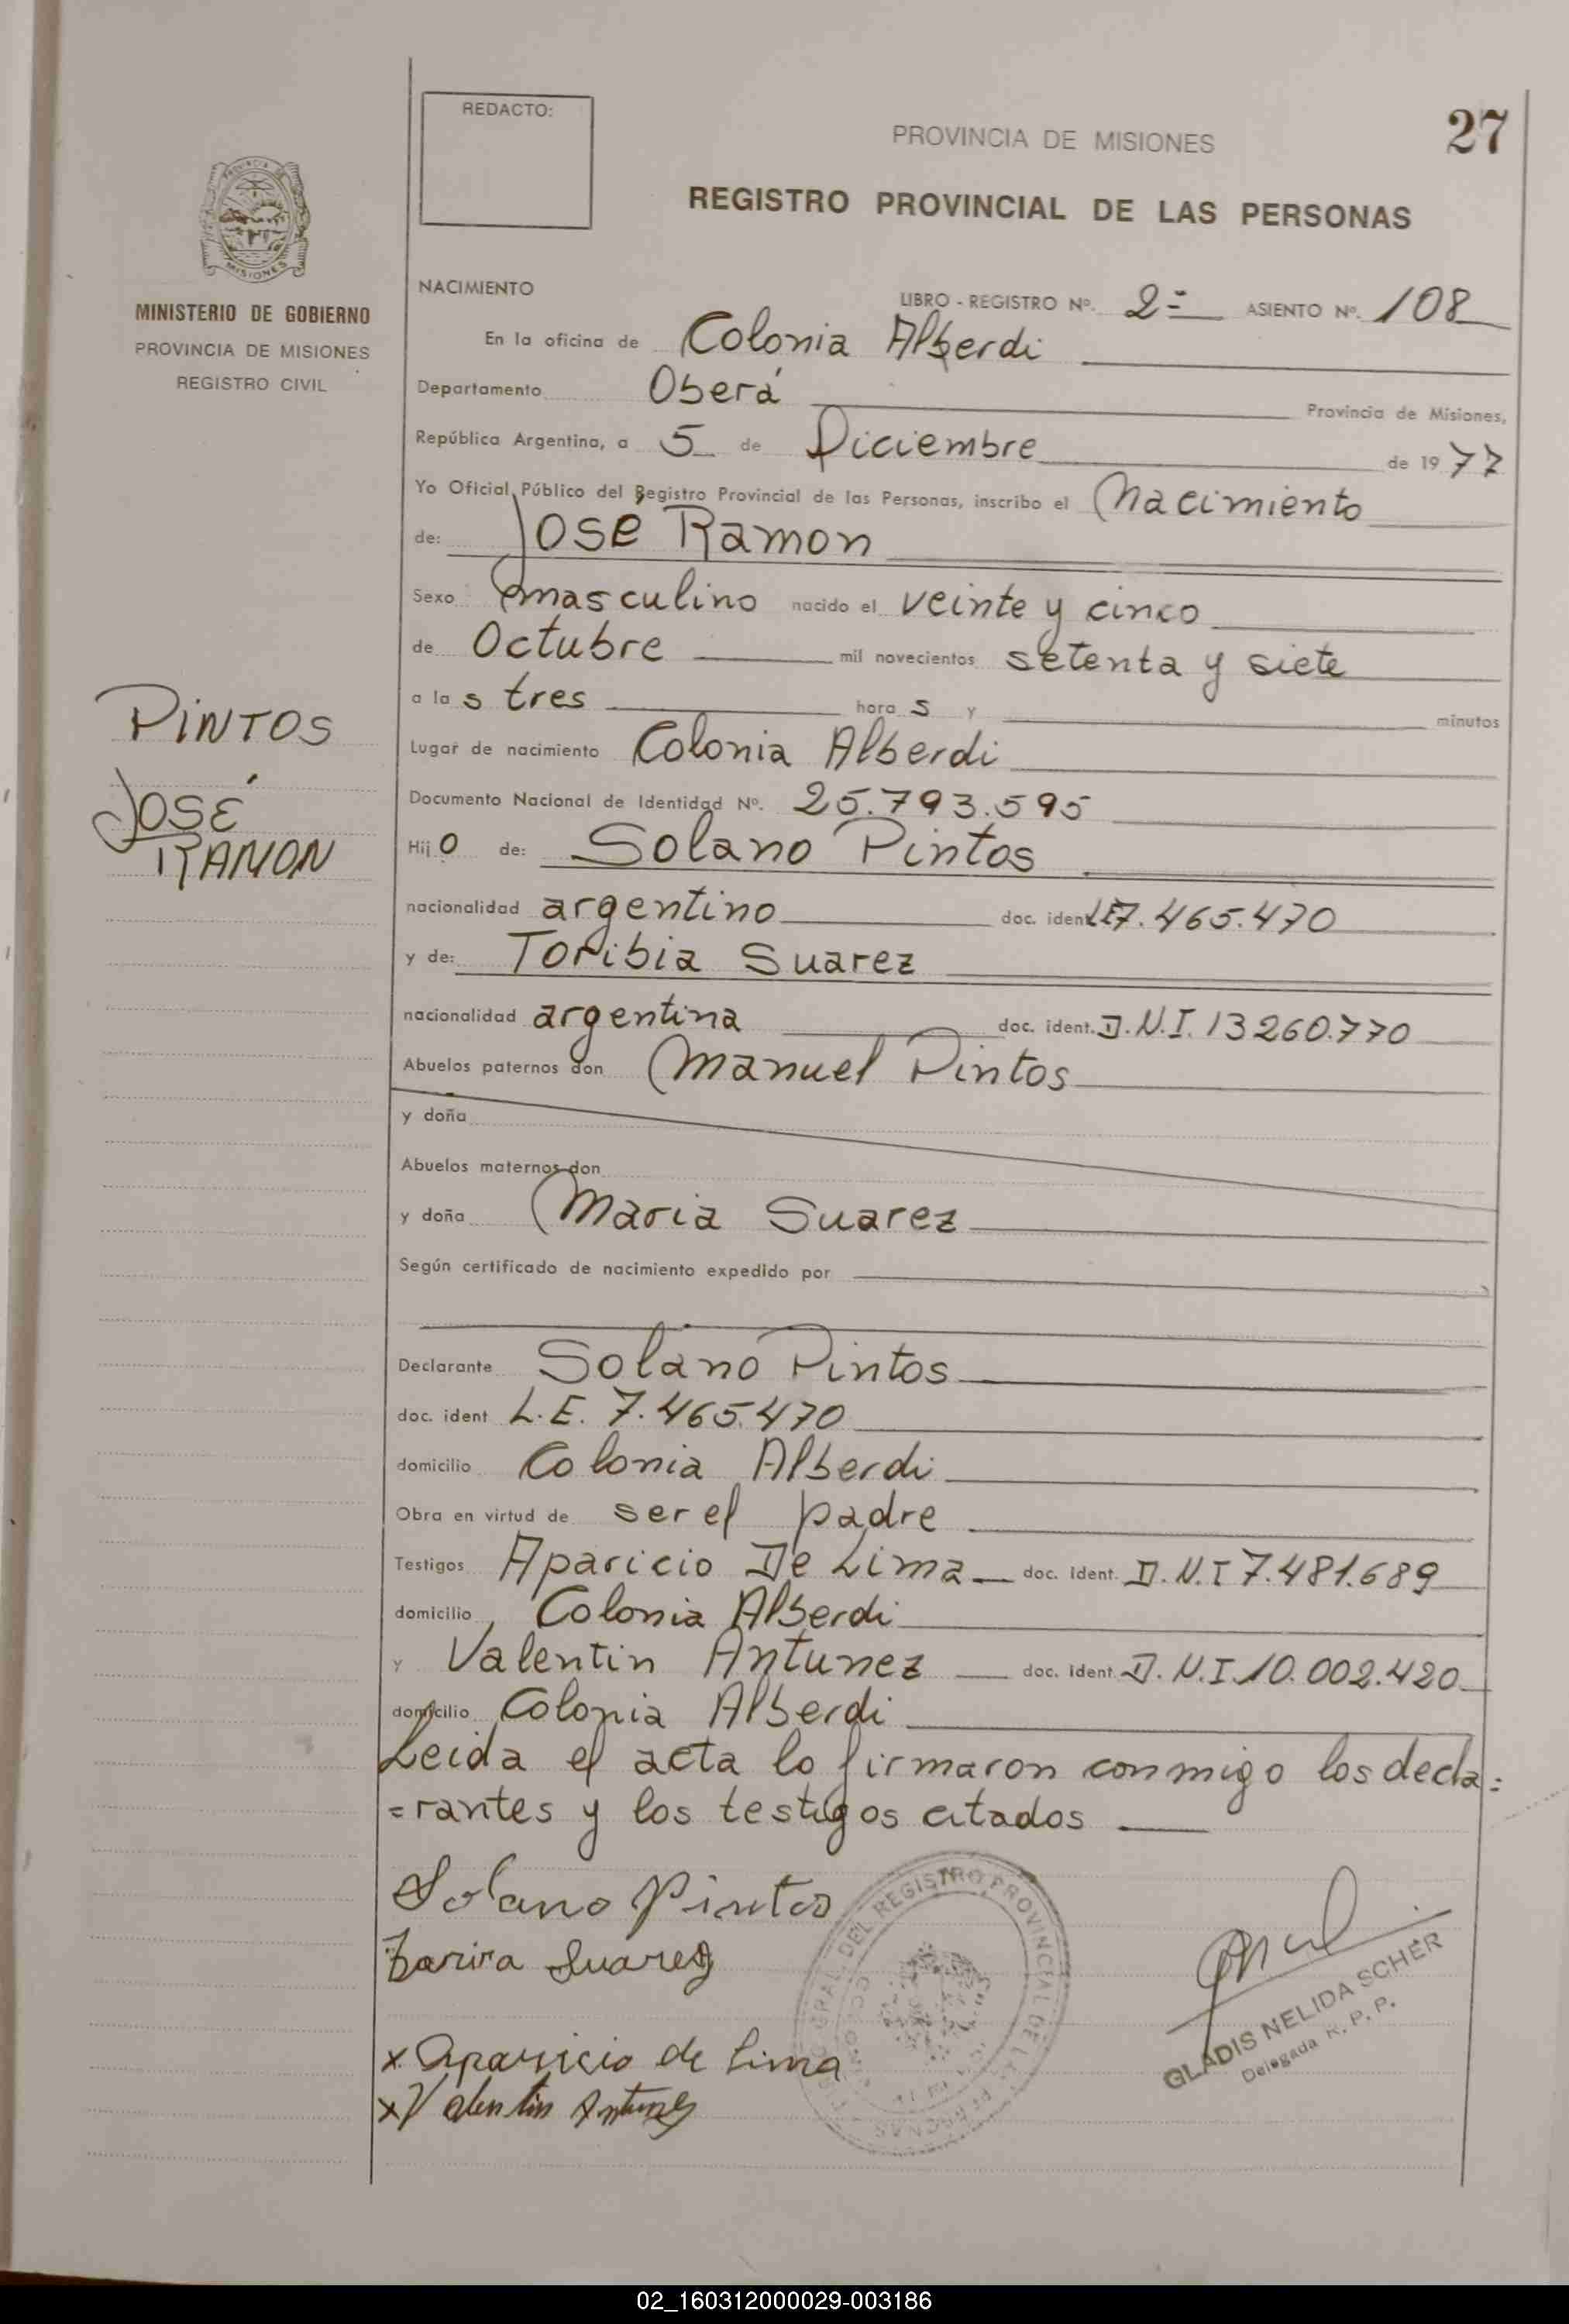 27
REDACTO:
PROVINCIA DE MISIONES
REGISTRO PROVINCIAL DE LAS PERSONAS
PROVINCIA DE
MISIONES
MINISTERIO DE GOBIERNO
PROVINCIA DE MISIONES
REGISTRO CIVIL
NACIMIENTO
LIBRO - REGISTRO Nº. 2= ASIENTO Nº. 108
En la oficina de Colonia Alberdi
Departamento Oberá Provincia de Misiones,
República Argentina, a 5 de Diciembre de 1977
Yo Oficial Público del Registro Provincial de las Personas, inscribo el Nacimiento
de: José Ramon
Sexo masculino nacido el veinte y cinco
de Octubre mil novecientos setenta y siete
a las tres horas y minutos
Lugar de nacimiento Colonia Alberdi
Documento Nacional de Identidad Nº. 25.793.595
Hijo de: Solano Pintos
nacionalidad argentino doc. ident LE7.465.470
y de: Toribia Suarez
nacionalidad argentina doc. ident. D.N.I. 13260.770
Abuelos paternos don Manuel Pintos
y doña
Abuelos maternos don
y doña Maria Suarez
Según certificado de nacimiento expedido por
Declarante Solano Pintos
doc. ident L.E. 7.465.470
domicilio Colonia Alberdi
Obra en virtud de ser el padre
Testigos Aparicio De Lima doc. ident. D.N.I 7.481.689
domicilio Colonia Alberdi
y Valentin Antunez doc. ident. D.N.I. 10.002.420
domicilio Colonia Alberdi
Leida el acta lo firmaron conmigo los decla=
=rantes y los testigos citados
PINTOS
JOSÉ
RAMON
Solano Pintos
Suarez
x Aparicio de Lima
x Valentin Antunez
DEL REGISTRO PROVINCIAL DE LAS PERSONAS
GLADIS NELIDA SCHER
Delegada R. P. P.
02_160312000029-003186